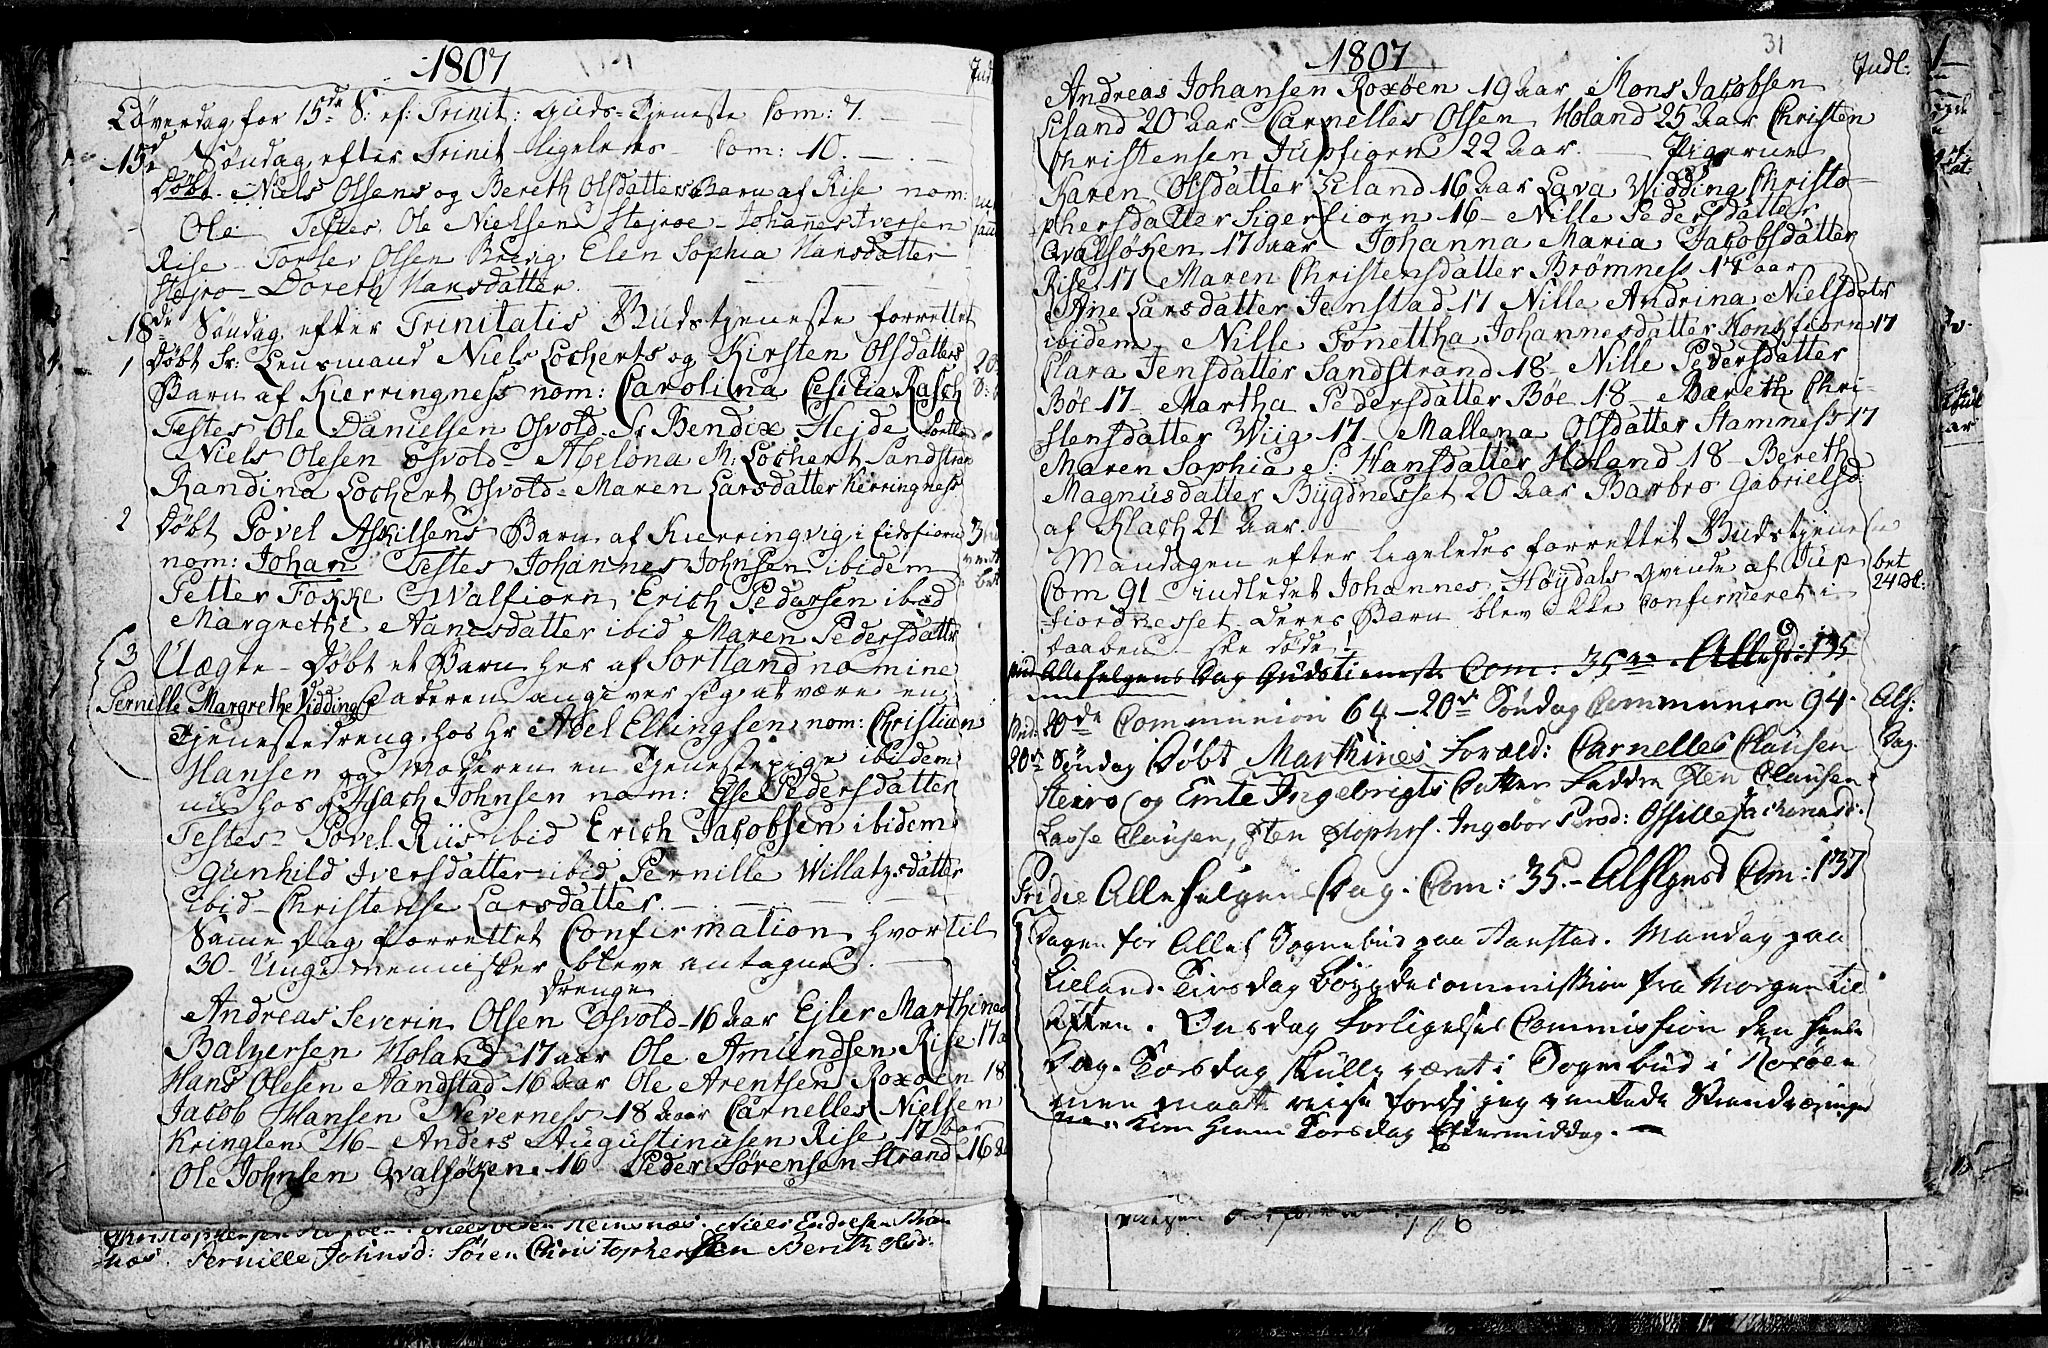 1807
Løverdag for 15de S: ef: Trinit: Guds-Tjeneste Com: 7.
15de Søndag efter Trinit ligeledes Com: 10.
Døbt Niels Olsens og Bereth Olsdatters Barn af Rise nom:
Ole Testes Ole Nielsen Stejroe - Johannes Iversen
Rise - Torler Olsen Brevig Elen Sophia Hansdatter
Stejro - Doreth Hansdatter.
18de Søndag efter Trinitatis Budstjeneste forrettet
1 Døbt Sr: Lensmand Niels Locherts og Kirsten Olsdatters
Barn af Kierringness nom: Carolina Cesilia Rasch
Testes Ole Danielsen Osvold - Sr Bendix Hejde Sortland
Niels Olesen Osvold - Abelona M: Lochert Sandstran
Randina Lochert Osvold - Maren Larsdatter Kerringness
2 Døbt Povel Askilsens Barn af Kierringvig i Eidsfiorn
nom: Johan Testes Johannes Johnsen ibidem
Petter Fokke Qvalfiorn Erich Pedersen ibid
Margrethe Hansdatter ibid Maren Pedersdatter
3 Uægte - Døbt et Barn her af Sortland nomine
Pernille Margrethe Vidding Faderen angiver sig at være en
Tjenestedreng hos Hr Abel Ellingsen nom: Christian
Hansen og Moderen en Tjenestepige ibidem
nu hos Isach Johnsen nom: Else Pedersdatter
Testes - Povel Riis ibid Erich Jacobsen ibidem
Gunhild Iversdatter ibid Pernille Willatzsdatter
ibid - Christense Larsdatter.
Same Dag forrettet Confirmation hvortil
30 - Unge Mennisker bleve antagne.
Drenge
Andreas Severin Olsen Osvold - 16 Aar Ejler Marthinas
Baltzersen Holand 17 aar Ole Amundsen Rise 17 a
Hans Olesen Aandstad 16 Aar Ole Arentsen Roxøen 18
Jacob Hansen Neverness 18 Aar Carnelles Nielsen
Kringlen 16 - Anders Augustinusen Rise 17 Aar
Ole Johnsen Qvalsøken 16 Peder Sørensen Strand 16 Aa
Niels Endresen
Pernille Johnsd: Søren Christophersen Berith Olsd:
1807
31
Indl:
Andreas Johansen Roxøen 19 Aar Mons Jacobsen
Liland 20 Aar - Carnelles Olsen Holand 25 Aar Christen
Christensen Jupfiorn 22 Aar. Pigerne
Karen Olsdatter Liland 16 Aar Lava Widding Christo-
phersdatter Sigerfiorn 16 - Nille Pedersdatter
Qvalsøken 17 aar Johanna Maria Jacobsdatter
Rise 17 Maren Christensdatter Brømness 17 aar
Ane Larsdatter Jenstad 17 Nille Andrina Nielsdatr
ibidem Nille Fonettha Johannesdatter Kongfiorn 17
Clara Jensdatter Sandstrand 18 - Nille Pedersdatter
Bøe 17 - Martha Pedersdatter Bøe 18 - Bereth Chri-
stensdatter Wiig 17 - Mallena Olsdatter Stamness 17
Maren Sophia S: Hansdatter Holand 18 - Bereth
Magnusdatter Bygdnesset 20 Aar Barbro Gabrielsd:
af Klach 21 Aar
Mandagen efter ligeledes forrettet Budstjeneste
Com 91 Indledet Johannes Høydals qvinde af Jup
fiordnesset deres Barn blev ikke Confirmeret i
daaben - see døde
bet
24 sk:
Allehelgens Dag Gudstieneste Com: 35 Allesd: 135
20de Communion 64 - 20de Søndag Communion 94.
20de Søndag Døbt Marthines Foræld: Carnelles Clausen
Steiro og Ente Ingebrigts Datter Faddre Sten Clausen
Lasse Clausen, Sten Stophers. Ingebor Persd: Ossille Zachariasd:
Pridie Allehelgens Dag. Com: 35. - Com: 137
Dagen før Allel Sognebud paa Aanstad. Mandag paa
Lieland. Tirsdag Bøygdecommission fra Morgen til
Aften. Onsdag Forligelses Commission den heele
Dag. Torsdag skulle været i Sognebud i Roxøen
men maatte reise fordj jeg ventede
Kom hiem Torsdag Eftermiddag.